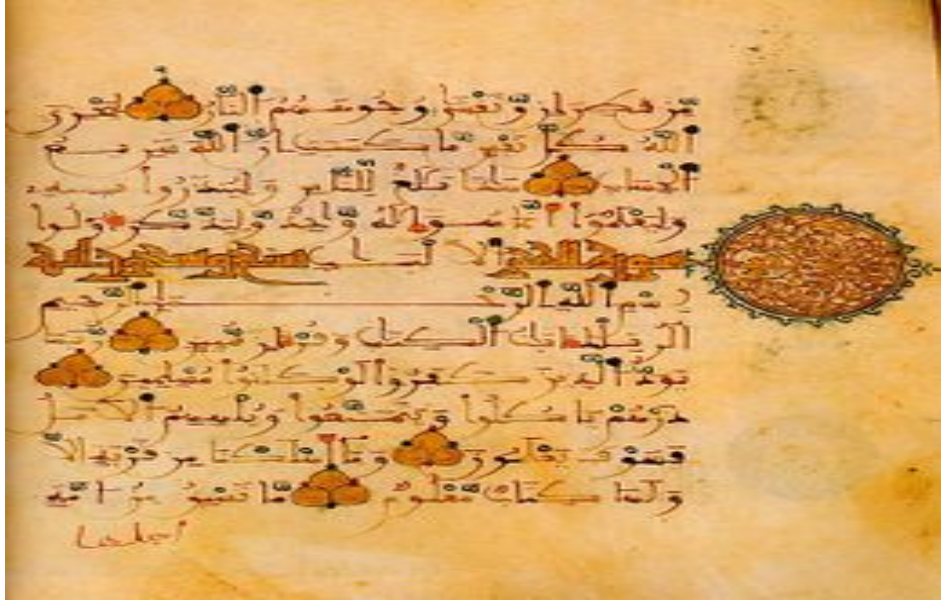 مِّن قَطِرَانٍ وَّتَغْشَىٰ وُجُوهَهُمُ النَّارُ لِيَجْزِيَ
اللَّهُ كُلَّ نَفْسٍ مَّا كَسَبَتْ إِنَّ اللَّهَ سَرِيعُ
الْحِسَابِ هَٰذَا بَلَٰغٌ لِّلنَّاسِ وَلِيُنذَرُوا بِهِ
وَلِيَعْلَمُوا أَنَّمَا هُوَ إِلَٰهٌ وَّاحِدٌ وَّلِيَذَّكَّرَ أُولُوا
سورة الحجر الالباب
بِسْمِ اللَّهِ الرَّحْمَٰنِ الرَّحِيمِ
الر تِلْكَ ءَايَٰتُ الْكِتَٰبِ وَقُرْءَانٍ مُّبِينٍ رُّبَمَا
يَوَدُّ الَّذِينَ كَفَرُوا لَوْ كَانُوا مُسْلِمِينَ
ذَرْهُمْ يَاكُلُوا وَيَتَمَتَّعُوا وَيُلْهِهِمُ الْأَمَلُ
فَسَوْفَ يَعْلَمُونَ وَمَا أَهْلَكْنَا مِن قَرْيَةٍ إِلَّا
وَلَهَا كِتَابٌ مَّعْلُومٌ مَّا تَسْبِقُ مِنْ أُمَّةٍ
أَجَلَهَا